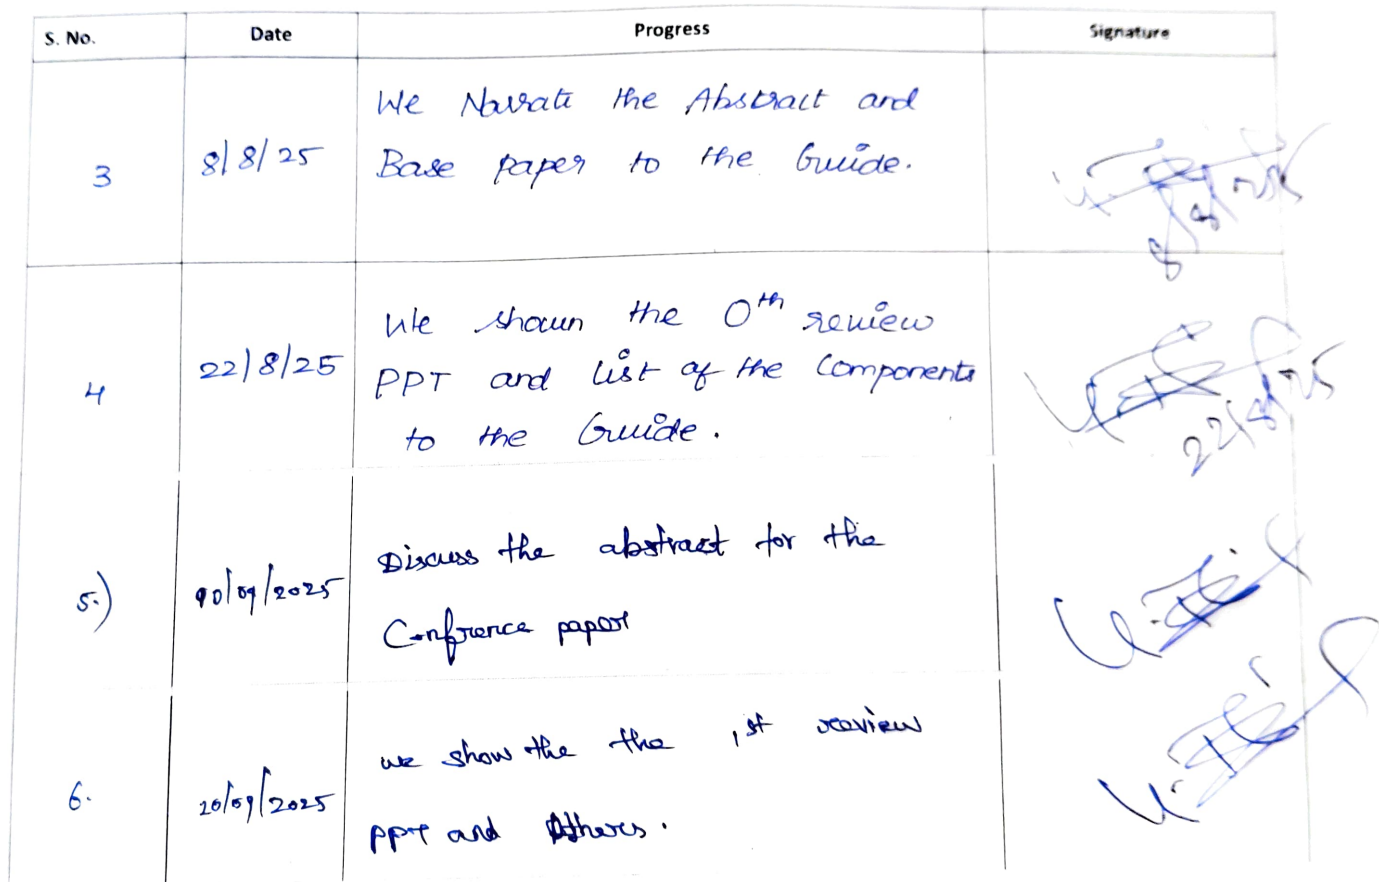 S. No. Date Progress Signature
3 8/8/25 We Narrate the Abstract and
Base paper to the Guide.
8/8/25
4 22/8/25 We shown the 0th review
PPT and list of the Components
to the Guide.
22/8/25
5.) 10/09/2025 Discuss the abstract for the
Confrence paper
6. 20/09/2025 we show the the 1st review
PPT and Others.